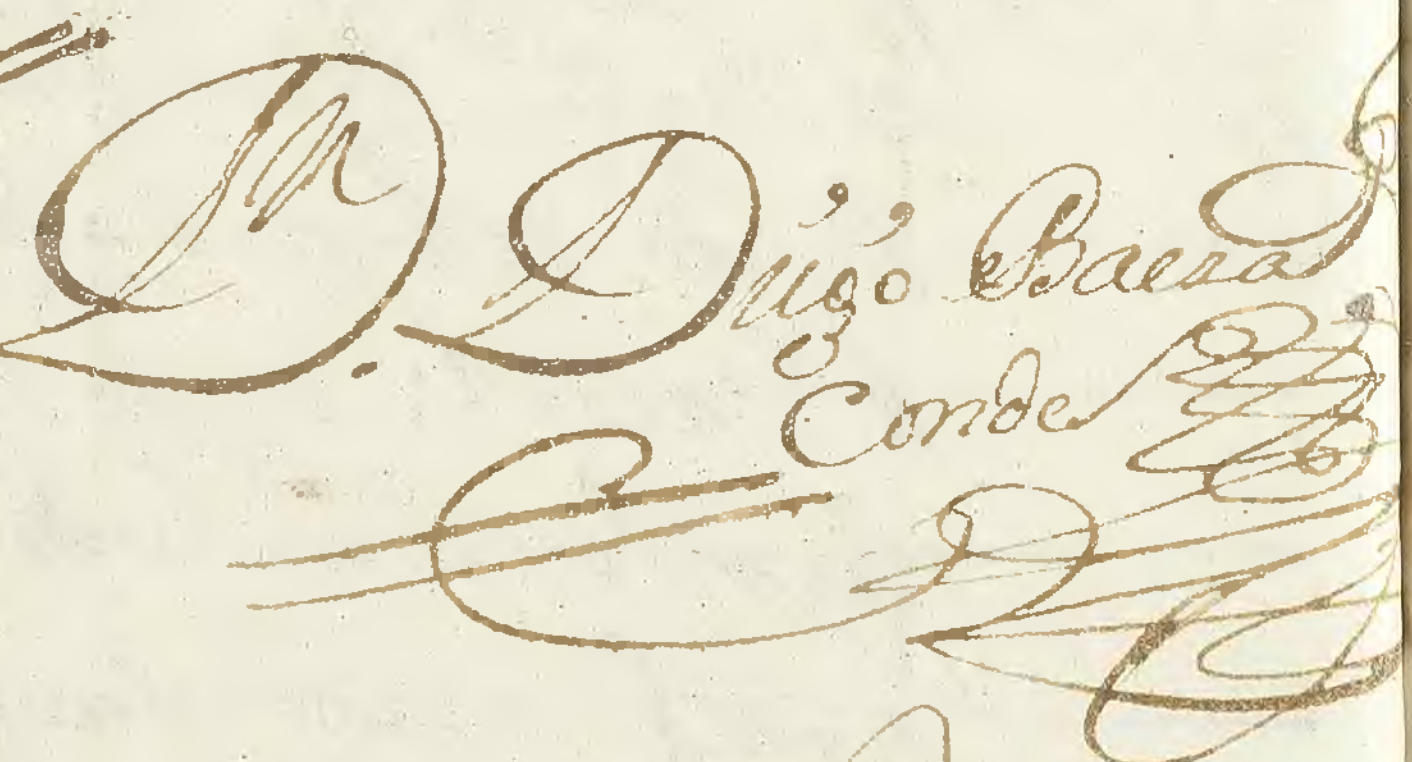 Dn. Diego Baeza
Conde